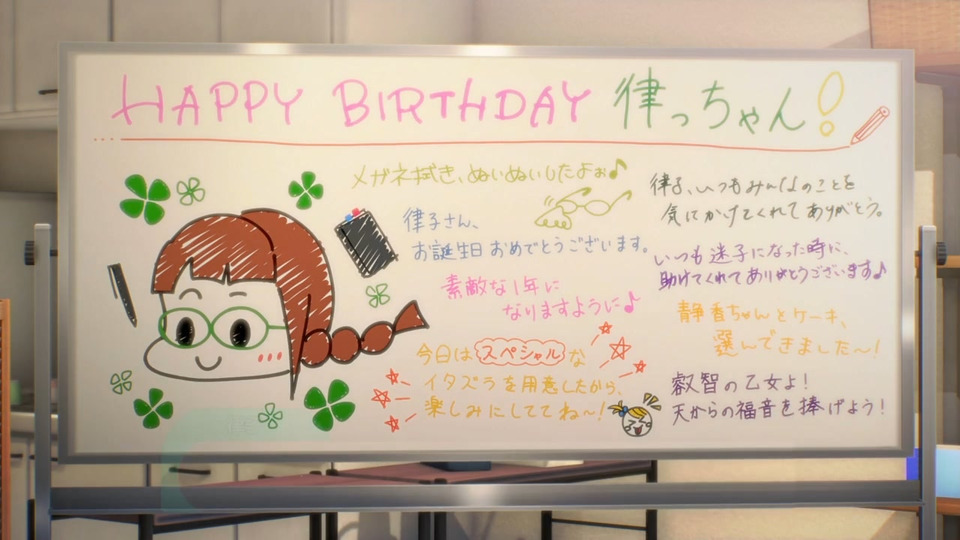 HAPPY BIRTHDAY 律っちゃん!
メガネ拭き、ぬいぬいしたよぉ♪
律子さん、
お誕生日おめでとうございます。
素敵な1年に
なりますように♪
今日はスペシャルな
イタズラを用意したから、
楽しみにしててね〜!
律子、いつもみんなのことを
気にかけてくれてありがとう。
いつも迷子になった時に、
助けてくれてありがとうございます♪
静香ちゃんとケーキ、
選んできました〜!
叡智の乙女よ!
天からの福音を捧げよう!